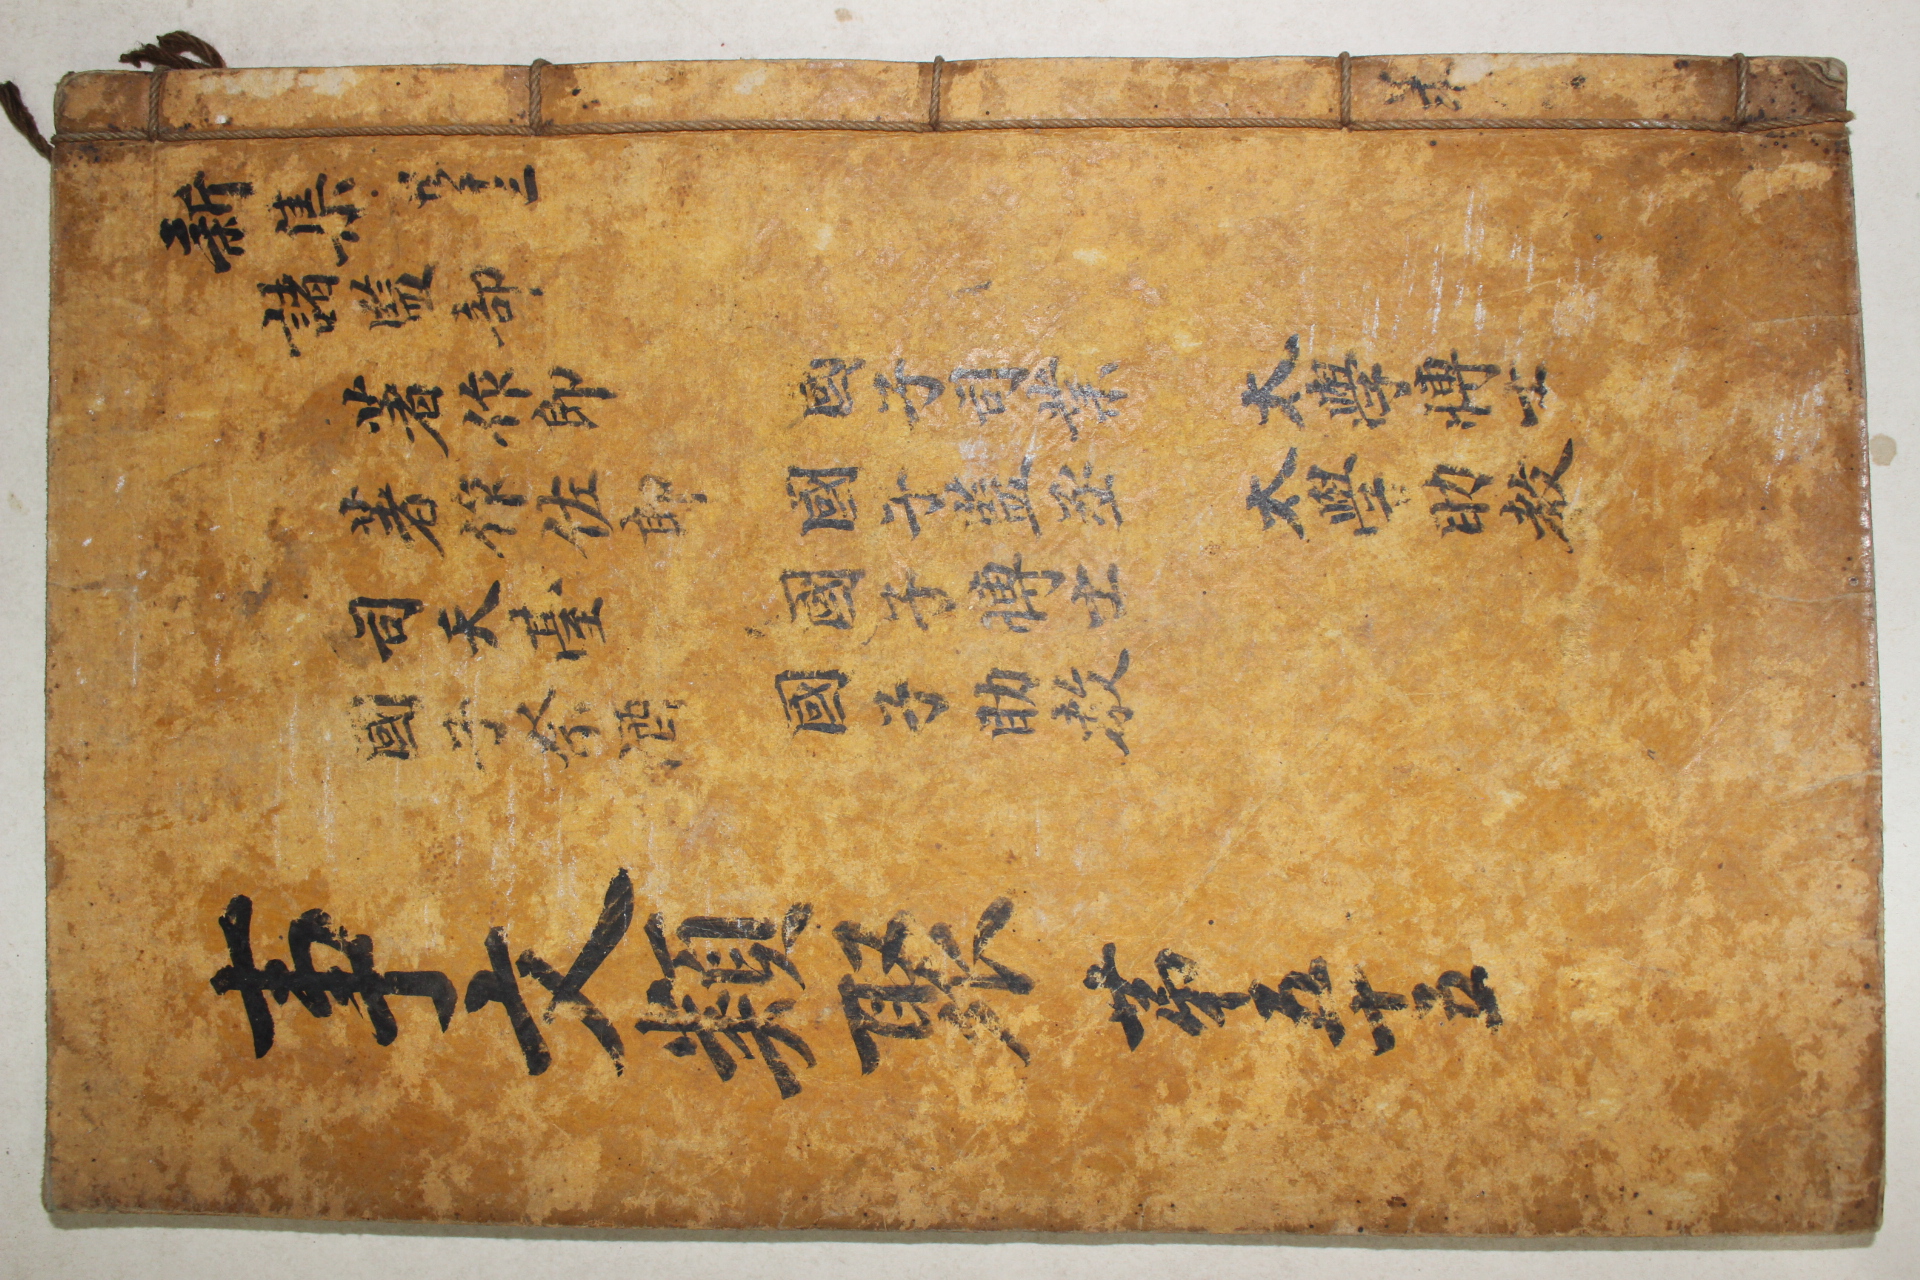 新集
諸監部
著作郎
著作佐郎
司天臺
國子祭酒
國子司業
國子監丞
國子博士
國子助教
太學博士
太學助教
事文類聚 第十五